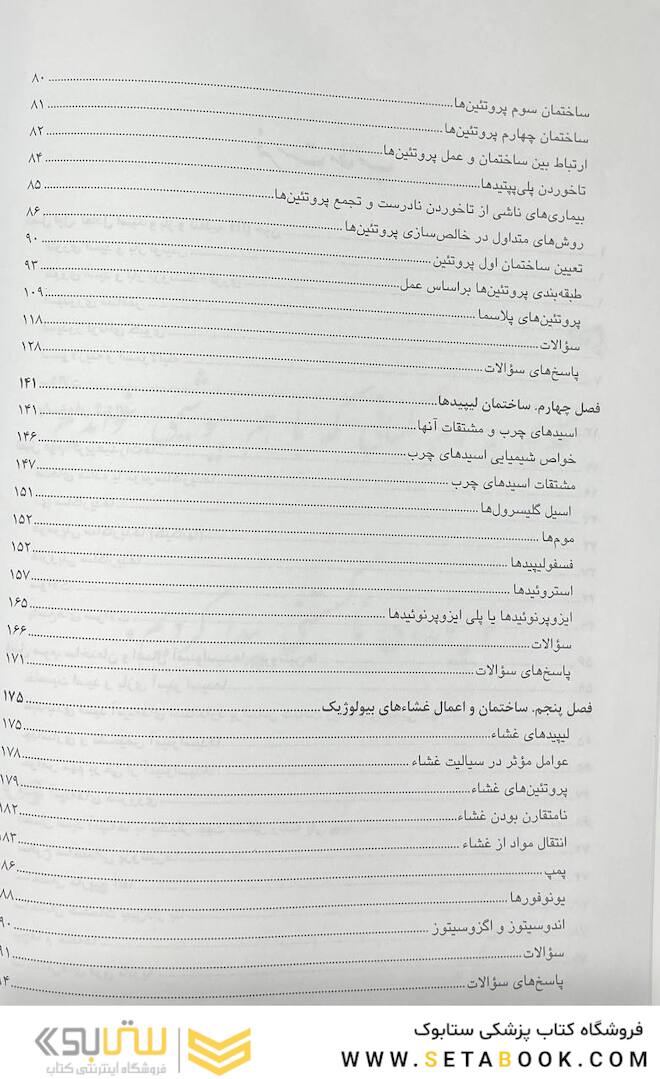 ساختمان سوم پروتئین‌ها ۸۰
ساختمان چهارم پروتئین‌ها ۸۱
ارتباط بین ساختمان و عمل پروتئین‌ها ۸۲
تاخوردن پلی‌پپتیدها ۸۴
بیماری‌های ناشی از تاخوردن نادرست و تجمع پروتئین‌ها ۸۵
روش‌های متداول در خالص‌سازی پروتئین‌ها ۸۶
تعیین ساختمان اول پروتئین ۹۰
طبقه‌بندی پروتئین‌ها براساس عمل ۹۳
پروتئین‌های پلاسما ۱۰۹
سؤالات ۱۱۸
پاسخ‌های سؤالات ۱۲۸
فصل چهارم. ساختمان لیپیدها ۱۴۱
اسیدهای چرب و مشتقات آنها ۱۴۱
خواص شیمیایی اسیدهای چرب ۱۴۶
مشتقات اسیدهای چرب ۱۴۷
اسیل گلیسرول‌ها ۱۵۱
موم‌ها ۱۵۲
فسفولیپیدها ۱۵۲
استروئیدها ۱۵۷
ایزوپرنوئیدها یا پلی ایزوپرنوئیدها ۱۶۵
سؤالات ۱۶۶
پاسخ‌های سؤالات ۱۷۱
فصل پنجم. ساختمان و اعمال غشاءهای بیولوژیک ۱۷۵
لیپیدهای غشاء ۱۷۵
عوامل مؤثر در سیالیت غشاء ۱۷۸
پروتئین‌های غشاء ۱۷۹
نامتقارن بودن غشاء ۱۸۲
انتقال مواد از غشاء ۱۸۳
پمپ ۸۶
یونوفورها ۸۸
اندوسیتوز و اگزوسیتوز ۹۰
سؤالات ۹۱
پاسخ‌های سؤالات ۹۴
فروشگاه کتاب پزشکی ستابوک
WWW.SETABOOK.COM
ستابوک
فروشگاه اینترنتی کتاب